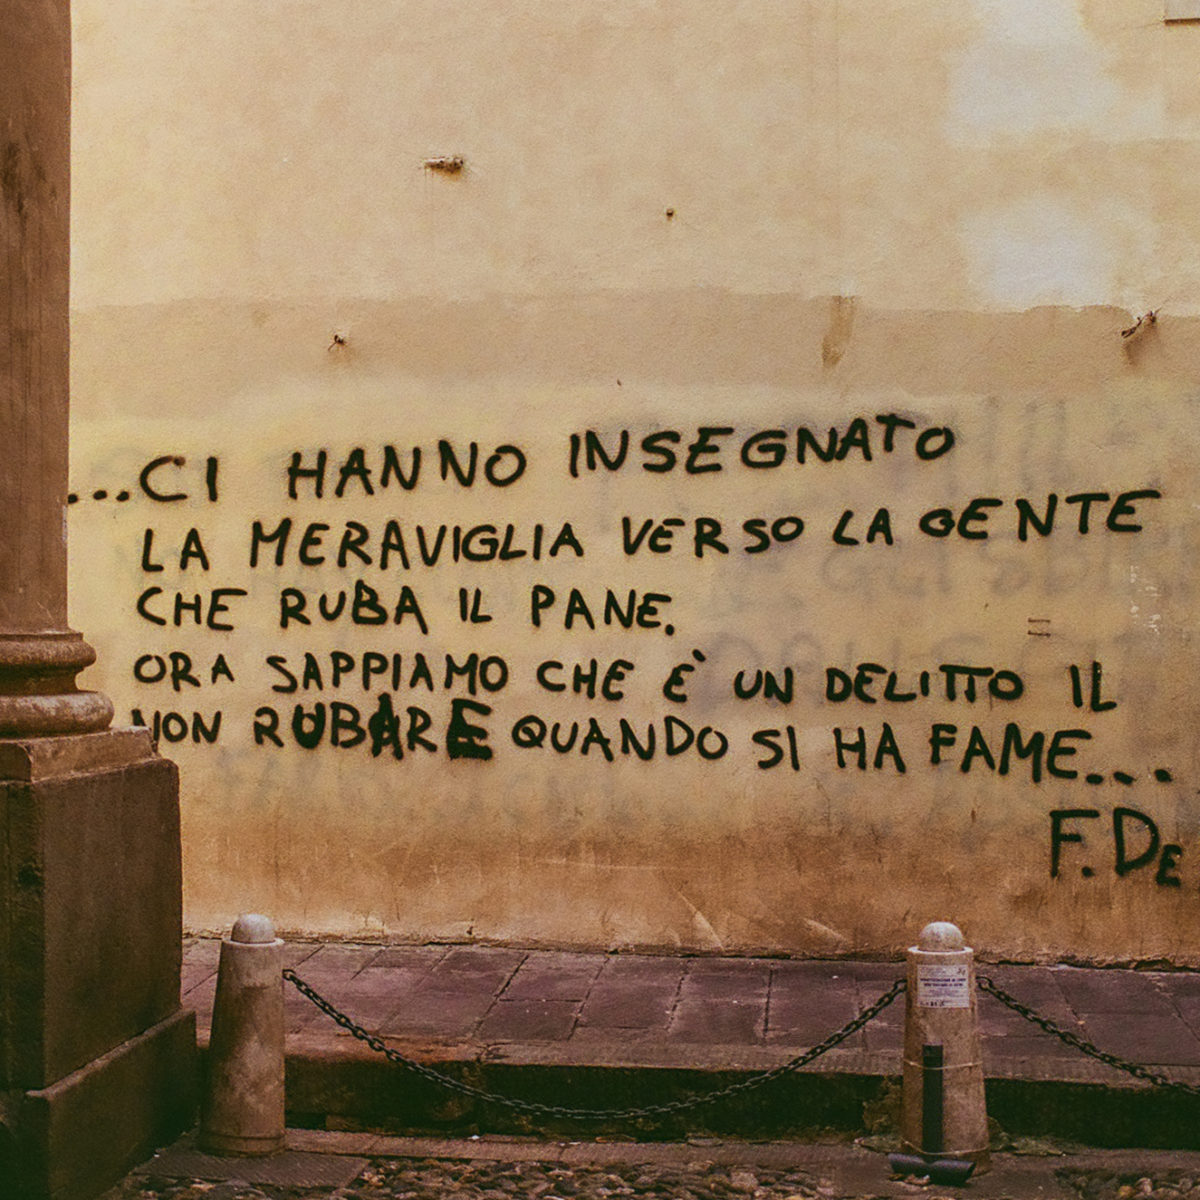 ...CI HANNO INSEGNATO
LA MERAVIGLIA VERSO LA GENTE
CHE RUBA IL PANE.
ORA SAPPIAMO CHE È UN DELITTO IL
NON RUBARE QUANDO SI HA FAME...
F. DE